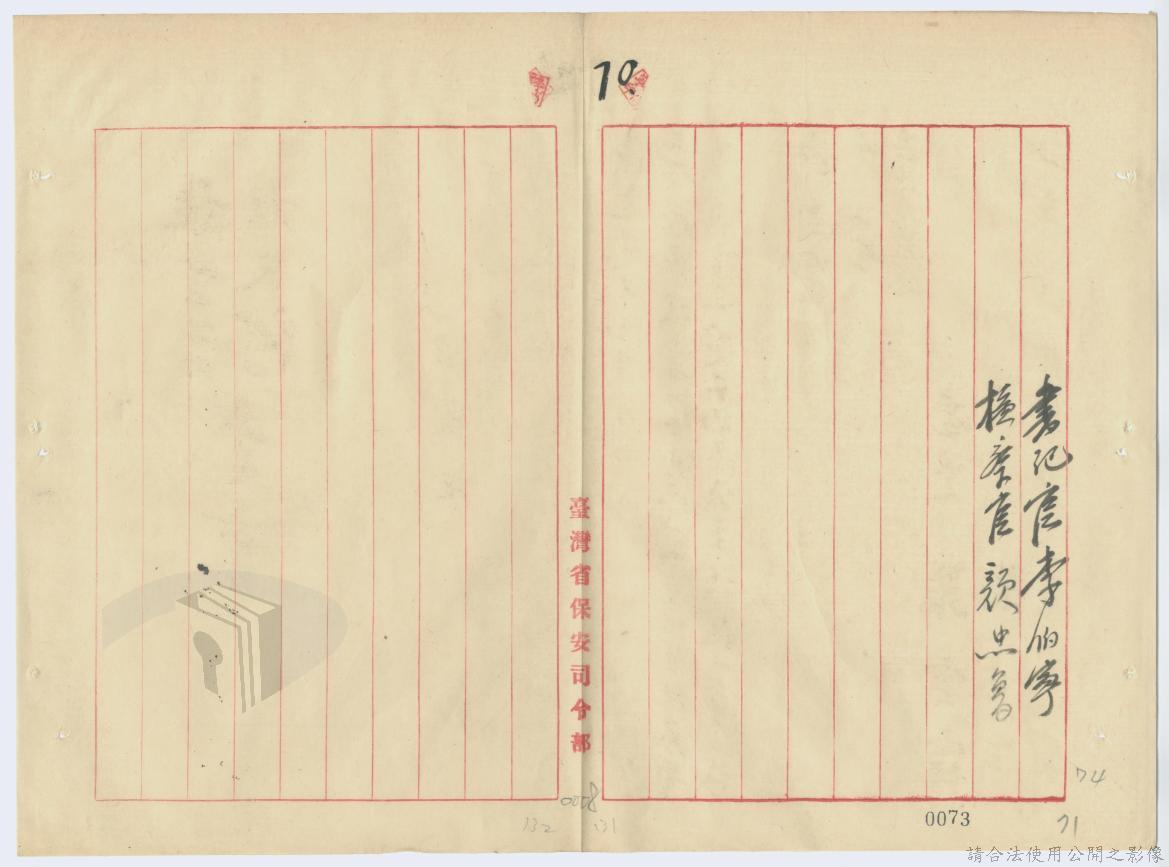 70.
書記官李伯寧
檢察官顏忠魯
臺灣省保安司令部
0008
132
131
0073
74
71
請合法使用公開之影像